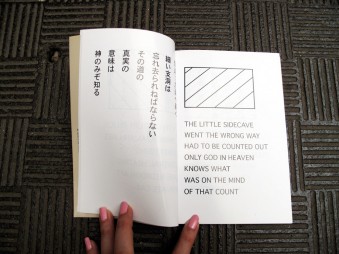 細い支洞は
忘れ去られねばならない
その道の
真実の
意味は
神のみぞ知る
THE LITTLE SIDECAVE
WENT THE WRONG WAY
HAD TO BE COUNTED OUT
ONLY GOD IN HEAVEN
KNOWS WHAT
WAS ON THE MIND
OF THAT COUNT